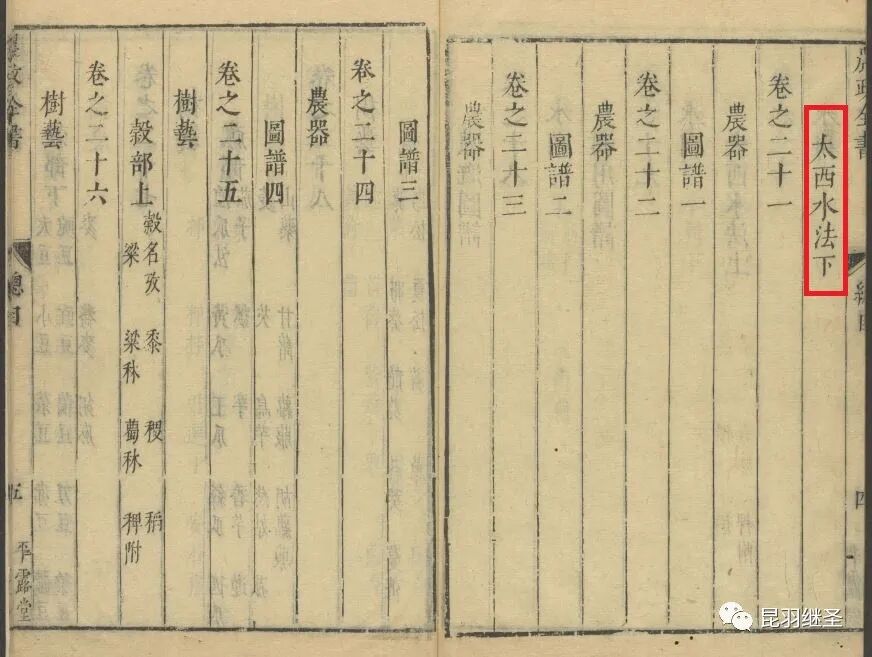 農政全書 總目 四
太西水法下
卷之二十一
農器
圖譜一
卷之二十二
農器
圖譜二
卷之二十三
農器
圖譜三
卷之二十四
農器
圖譜四
卷之二十五
樹藝
穀部上
穀名攷 黍 稷 稻
粱 粱秫 蜀秫 稗附
卷之二十六
樹藝
農政全書 總目 五 平露堂
昆羽继圣